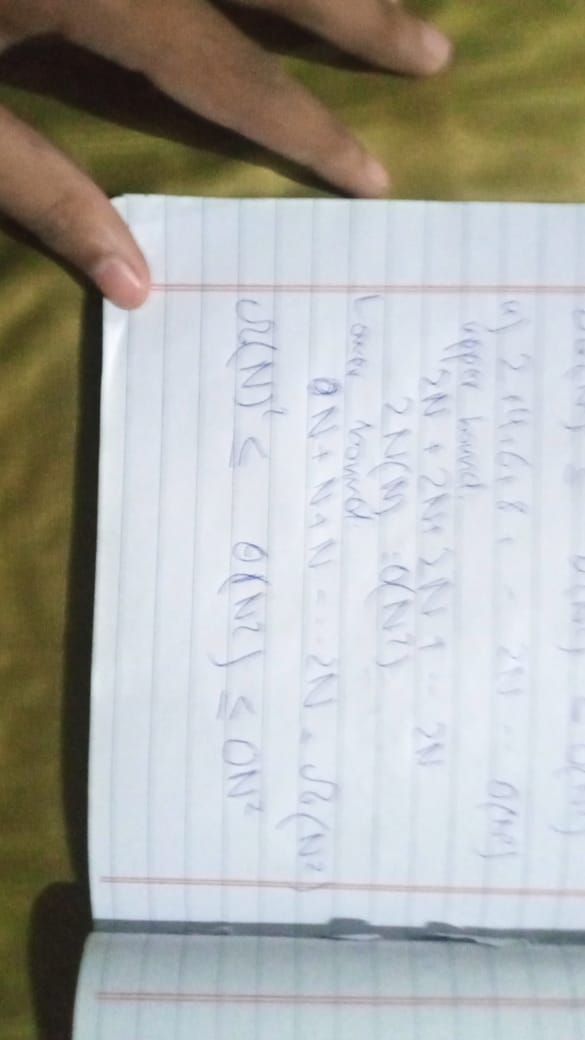 4) 2+4+6+8+ - - 2N - - θ(N²)
upper bound.
2N + 2N + 2N + - - 2N
2N(N) = O(N²)
Lower bound.
N + N + N - - - 2N = Ω(N²)
Ω(N)² ≤ θ(N²) ≤ ON²